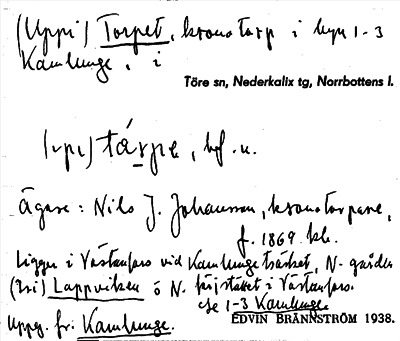 (Uppi) Torpet, kronotorp i byn 1-3
Kamlunge, i
Töre sn, Nederkalix tg, Norrbottens l.
(upi) tárpe, bf. u.
Ägare: Nils J. Johansson, kronotorpare,
f. 1869 kb.
Ligger i Västanfors vid Kamlungeträsket, N- gården
(Jri) Lappviken ö N. i Västanfors.
se 1-3 Kamlunge.
Uppg. fr. Kamlunge.
EDVIN BRÄNNSTRÖM 1938.